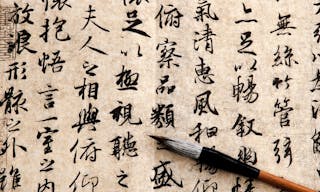 無絲竹管弦
足以暢敘幽
氣清惠風和暢仰
俯察品類盛
足以極視聽之
夫人之相與俯仰
懷抱悟言一室之內
放浪形骸之外雖